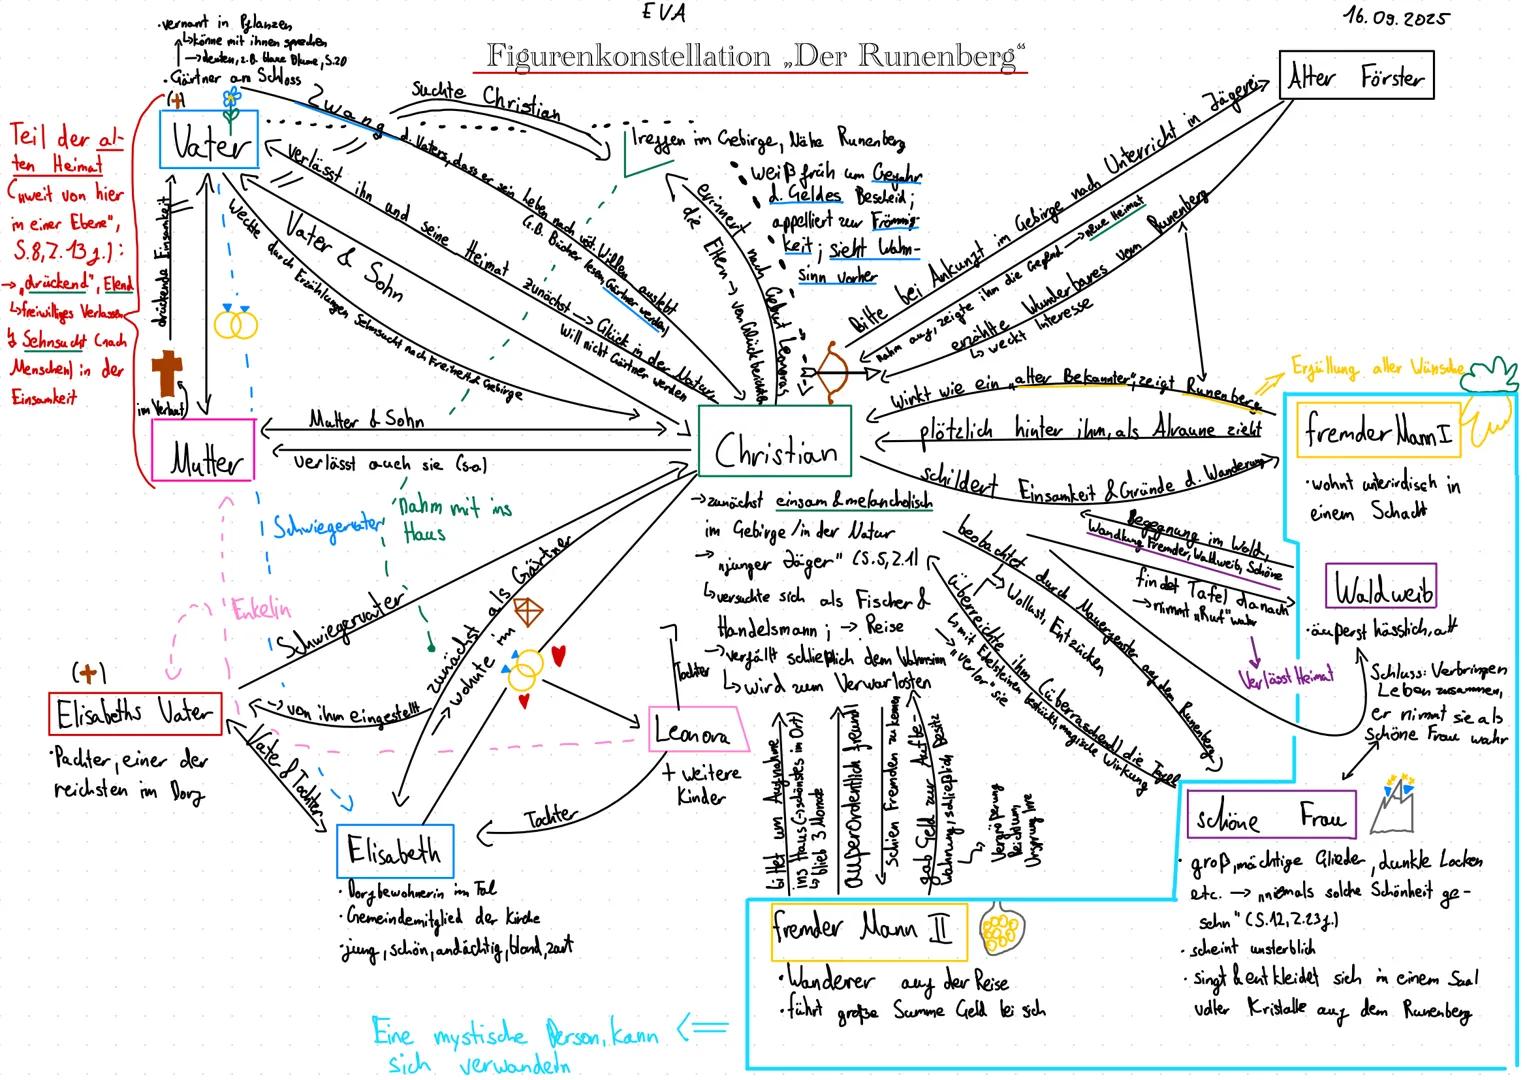 EVA
16.09.2025
Figurenkonstellation „Der Runenberg“
·vernarrt in Pflanzen
↳könne mit ihnen sprechen
→deuten, z.B. blaue Blume, S.20
·Gärtner am Schloss
(+)
Vater
Teil der al-
ten Heimat
("weit von hier
in einer Ebene",
S.8, Z.13f.):
→„drückend", Elend
↳freiwilliges Verlassen
↯ Sehnsucht (nach
Menschen) in der
Einsamkeit
drückende Einsamkeit
im Verlauf
Mutter
Zwang d. Vaters, dass er sein Leben nach väst. Willen auslebt
(z.B. Bücher lesen, Gärtner werden)
suchte Christian
verlässt ihn und seine Heimat zunächst → Glück in der Natur,
will nicht Gärtner werden
Vater & Sohn
weckte durch Erzählungen Sehnsucht nach Freiheit & Gebirge
Treffen im Gebirge, Nähe Runenberg
weiß früh um Gefahr
d. Geldes Bescheid;
appelliert zur Frömmig-
keit; sieht Wahn-
sinn vorher
erinnert nach Geburt Leonoras
die Eltern → von Glück berichten
Alter Förster
Bitte bei Ankunft im Gebirge nach Unterricht in Jägerei
nahm auf, zeigte ihm die Gegend → neue Heimat
erzählte Wunderbares vom Runenberg
↳ weckt Interesse
Mutter & Sohn
verlässt auch sie (s.o.)
Nahm mit ins
Haus
Schwiegervater
Enkelin
Christian
→zunächst einsam & melancholisch
im Gebirge / in der Natur
→ "junger Jäger" (S.5, Z.1)
↳versuchte sich als Fischer &
Handelsmann; → Reise
→verfällt schließlich dem Wahnsinn
↳ wird zum Verwarlosten
Wirkt wie ein „alter Bekannter", zeigt Runenberg
Erfüllung aller Wünsche
plötzlich hinter ihm, als Alraune zieht
schildert Einsamkeit & Gründe d. Wanderung
fremder Mann I
·wohnt unterirdisch in
einem Schacht
Begegnung im Wald,
Wandlung Fremder, Waldweib, Schöne
findet Tafel danach
→nimmt „Ruf" wahr
Verlässt Heimat
Waldweib
·äuperst hässlich, alt
Schluss: Verbringen
Leben zusammen,
er nimmt sie als
Schöne Frau wahr
beobachtet durch Mauerfenster auf dem Runenberg
↳ Wollust, Entzücken
überreichte ihm (überraschend) die Tafel
↳ mit Edelsteinen bestückt, magische Wirkung
→ "verlor" sie
schöne Frau
· groß, mächtige Glieder, dunkle Locken
etc. → „niemals solche Schönheit ge-
sehn" (S.12, Z.23f.)
· scheint unsterblich
· singt & entkleidet sich in einem Saal
voller Kristalle auf dem Runenberg
Schwiegervater
zunächst als Gärtner
→ wohnte im
von ihm eingestellt
(+)
Elisabeths Vater
·Pächter, einer der
reichsten im Dorf
Vater & Tochter
Elisabeth
· Dorfbewohnerin im Tal
· Gemeindemitglied der Kirche
·jung, schön, andächtig, blond, zart
Tochter
Leonora
+ weitere
Kinder
Tochter
bittet um Aufnahme
ins Haus (→schönstes im Ort)
↳ blieb 3 Monate
außerordentlich freundl.
schien Fremden zu kennen
gab Geld zur Aufbe-
wahrung, schließlich Besitz
Vergrößerung
Reichtum,
Ursprung Irre
fremder Mann II
·Wanderer auf der Reise
·führt große Summe Geld bei sich
Eine mystische Person, kann
sich verwandeln